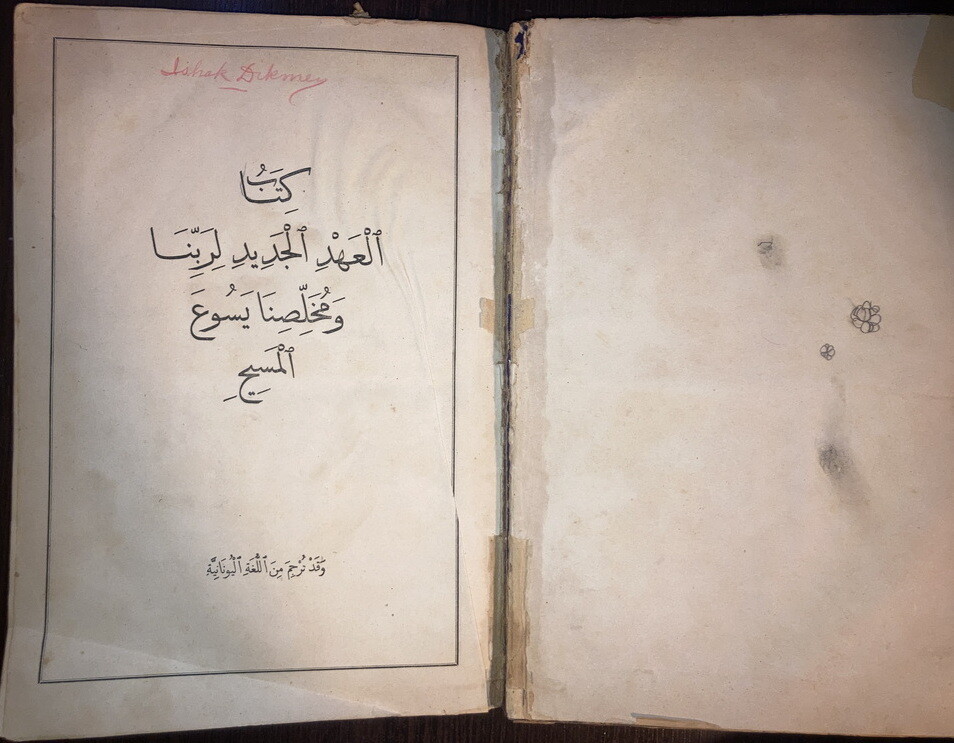 Ishak Dikmen
كِتَابُ
ٱلْعَهْدِ ٱلْجَدِيدِ لِرَبِّنَا
وَمُخَلِّصِنَا يَسُوعَ
ٱلْمَسِيحِ
وَقَدْ تُرْجِمَ مِنَ ٱللُّغَةِ ٱلْيُونَانِيَّةِ